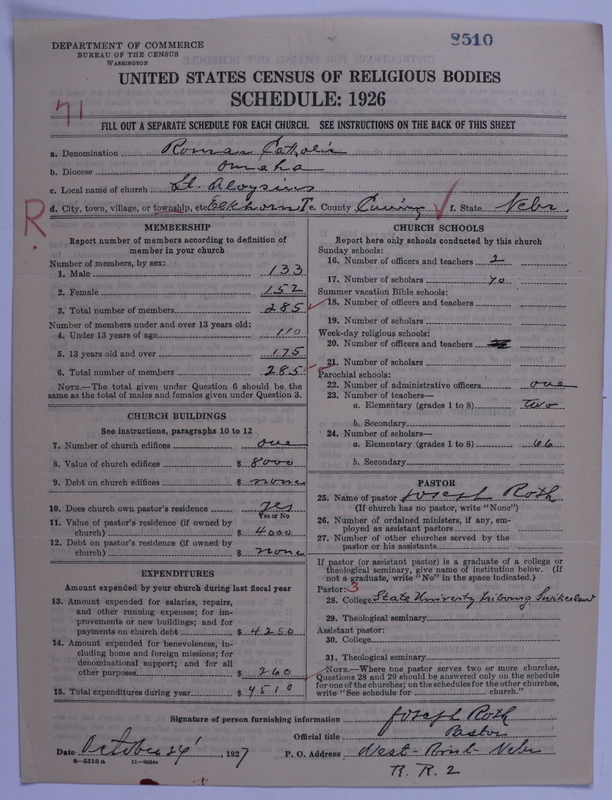 DEPARTMENT OF COMMERCE
BUREAU OF THE CENSUS
WASHINGTON
2510
UNITED STATES CENSUS OF RELIGIOUS BODIES
SCHEDULE: 1926
71
FILL OUT A SEPARATE SCHEDULE FOR EACH CHURCH. SEE INSTRUCTIONS ON THE BACK OF THIS SHEET
a. Denomination Roman Catholic
b. Diocese Omaha
c. Local name of church St. Aloysius
d. City, town, village, or township, etc. Elkhorn T e. County Cuming f. State Nebr.
R
MEMBERSHIP
Report number of members according to definition of member in your church
Number of members, by sex:
1. Male 133
2. Female 152
3. Total number of members 285
Number of members under and over 13 years old:
4. Under 13 years of age 110
5. 13 years old and over 175
6. Total number of members 285
NOTE.—The total given under Question 6 should be the
same as the total of males and females given under Question 3.
CHURCH BUILDINGS
See instructions, paragraphs 10 to 12
7. Number of church edifices one
8. Value of church edifices $ 8000
9. Debt on church edifices $ none
10. Does church own pastor's residence? yes
Yes or No
11. Value of pastor's residence (if owned by
church) $ 4000
12. Debt on pastor's residence (if owned by
church) $ none
EXPENDITURES
Amount expended by your church during last fiscal year
13. Amount expended for salaries, repairs,
and other running expenses; for im-
provements or new buildings; and for
payments on church debt $ 4250
14. Amount expended for benevolences, in-
cluding home and foreign missions; for
denominational support; and for all
other purposes $ 260
15. Total expenditures during year $ 4510
CHURCH SCHOOLS
Report here only schools conducted by this church
Sunday schools:
16. Number of officers and teachers 2
17. Number of scholars 70
Summer vacation Bible schools:
18. Number of officers and teachers
19. Number of scholars
Week-day religious schools:
20. Number of officers and teachers
21. Number of scholars
Parochial schools:
22. Number of administrative officers one
23. Number of teachers—
a. Elementary (grades 1 to 8) two
b. Secondary
24. Number of scholars—
a. Elementary (grades 1 to 8) 66
b. Secondary
PASTOR
25. Name of pastor Joseph Roth
(If church has no pastor, write "None")
26. Number of ordained ministers, if any, em-
ployed as assistant pastors
27. Number of other churches served by the
pastor or his assistants
If pastor (or assistant pastor) is a graduate of a college or
theological seminary, give name of institution below. (If
not a graduate, write "No" in the space indicated.)
Pastor: 3
28. College State University Friburg Switzerland
29. Theological seminary
Assistant pastor:
30. College
31. Theological seminary
NOTE.—Where one pastor serves two or more churches,
Questions 28 and 29 should be answered only on the schedule
for one of the churches; on the schedules for the other churches,
write "See schedule for church."
Signature of person furnishing information Joseph Roth
Official title Pastor
Date October 24 1927 P. O. Address West-Point Nebr
8—5518 a 11—9088
R. R. 2